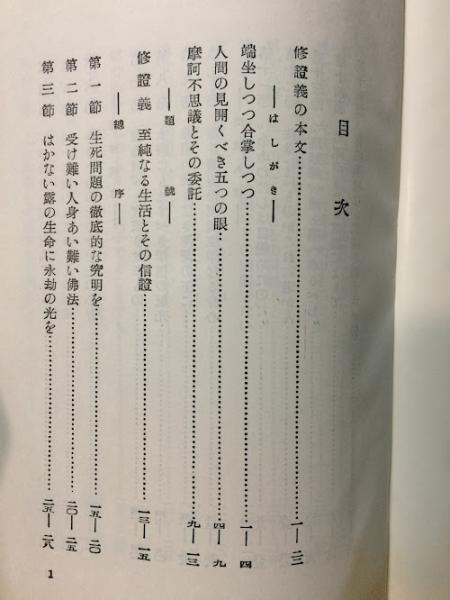 目次
修證義の本文……………一―二三
――はしがき――
端坐しつつ合掌しつつ……………一―四
人間の見開くべき五つの眼……………四―九
摩訶不思議とその委託……………九―一三
――題號――
修證義 至純なる生活とその信證……………一三―一五
――總序――
第一節 生死問題の徹底的な究明を……………一五―二〇
第二節 受け難い人身あい難い佛法……………二〇―二五
第三節 はかない露の生命に永劫の光を……………二五―二八
1